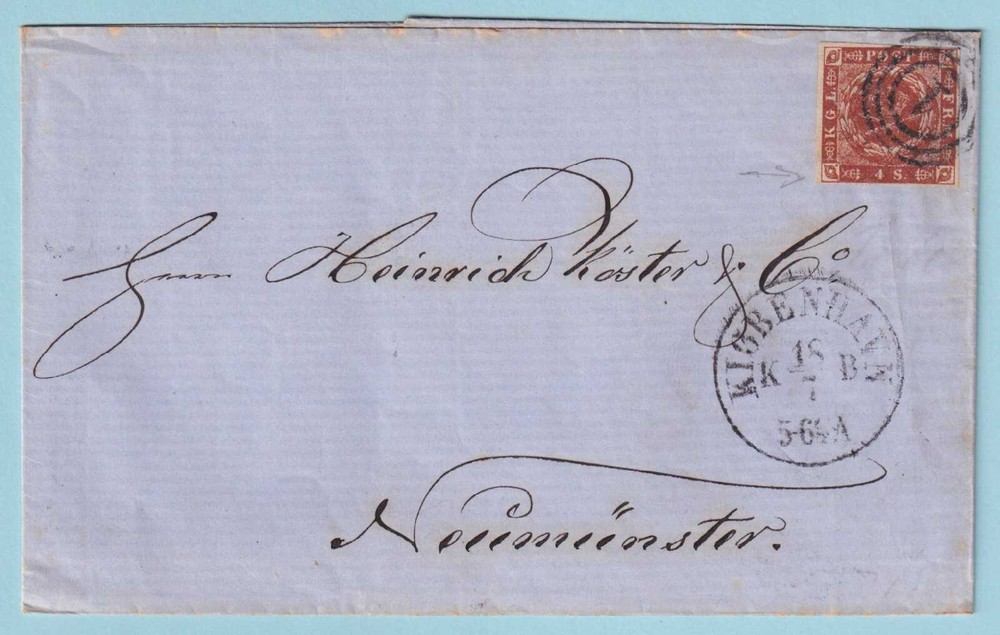 POST
K G L.
FR. M.
4 S.
1
Herrn Heinrich Köster & Co
KIØBENHAVN
K 18 B
7
5-6½A
Neumünster.